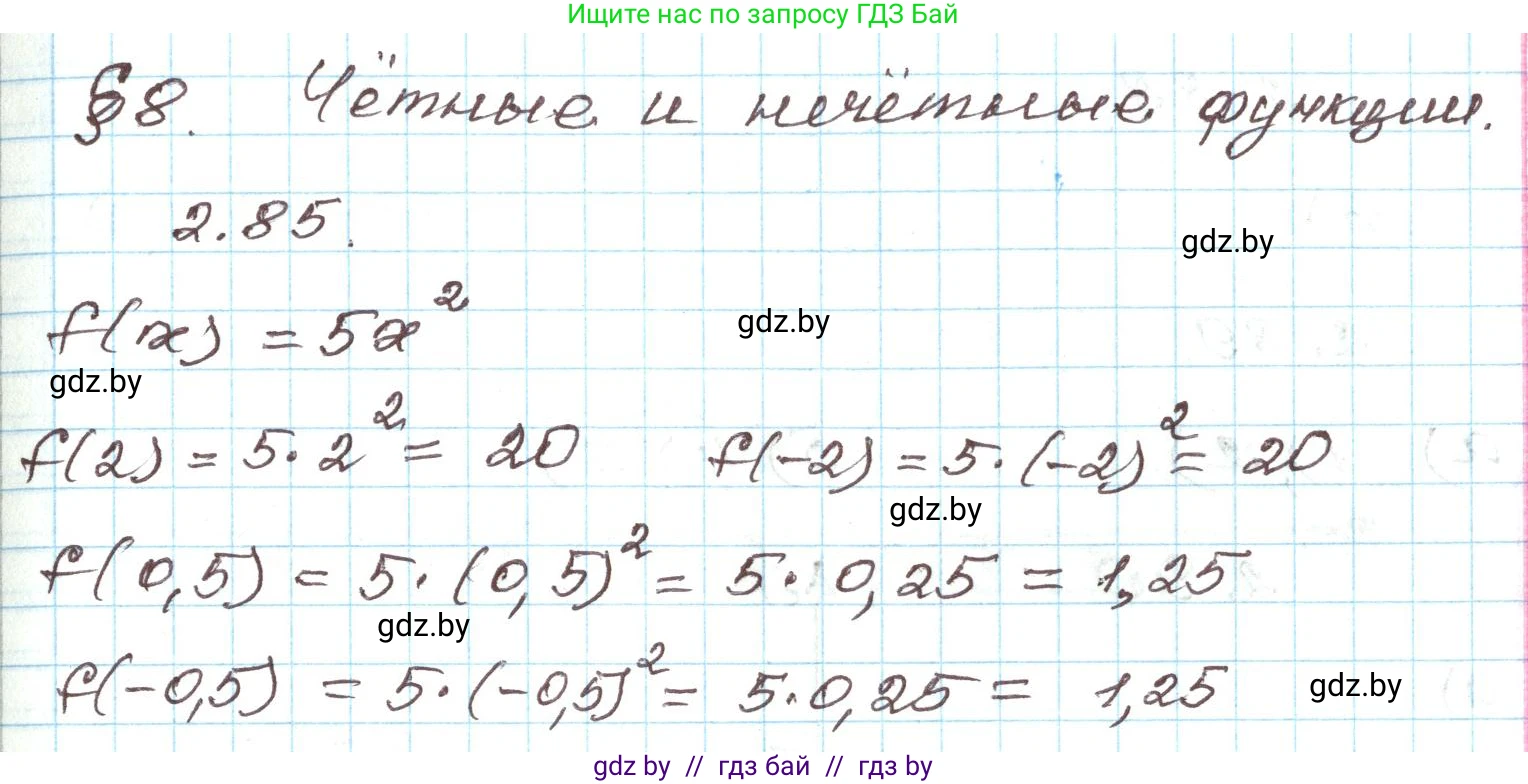 Ищите нас по запросу ГДЗ Бай
§8. Чётные и нечётные функции.
2.85.
gdz.by
f(x) = 5x²
gdz.by
gdz.by
f(2) = 5·2² = 20 f(-2) = 5·(-2)² = 20
gdz.by
f(0,5) = 5·(0,5)² = 5·0,25 = 1,25
gdz.by
f(-0,5) = 5·(-0,5)² = 5·0,25 = 1,25
gdz.by
gdz by // гдз бай // гдз by